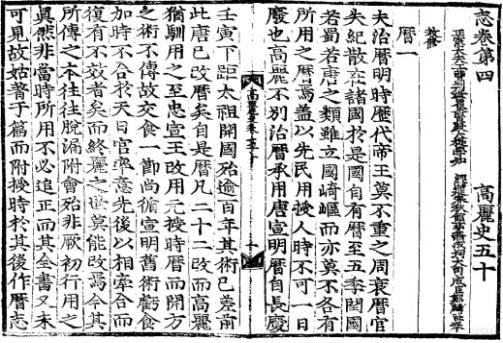 志卷第四 高麗史五十
正憲大夫工曹判書集賢殿大提學知 經筵春秋館事兼成均大司成臣鄭麟趾奉
教修
曆一
夫治曆明時歷代帝王莫不重之周衰曆官
失紀散在諸國於是國自有曆至五季閏國
若蜀若唐之類雖立國崎嶇而亦莫不各有
所用之曆焉盖以先民用授人時不可一日
廢也高麗不別治曆承用唐宣明曆自長慶
高麗史卷五十
壬寅下距太祖開國殆逾百年其術已差前
此唐已改曆矣自是曆凡二十二改而高麗
猶馴用之至忠宣王改用元授時曆而開方
之術不傳故交食一節尚循宣明舊術虧食
加時不合於天日官率意先後以相牽合而
復有不效者矣而終麗之世莫能改焉今其
所傳之本往往脫漏附會殆非厥初行用之
眞然非當時所用不必追正而其全書又未
可見故姑著于篇而附授時於其後作曆志